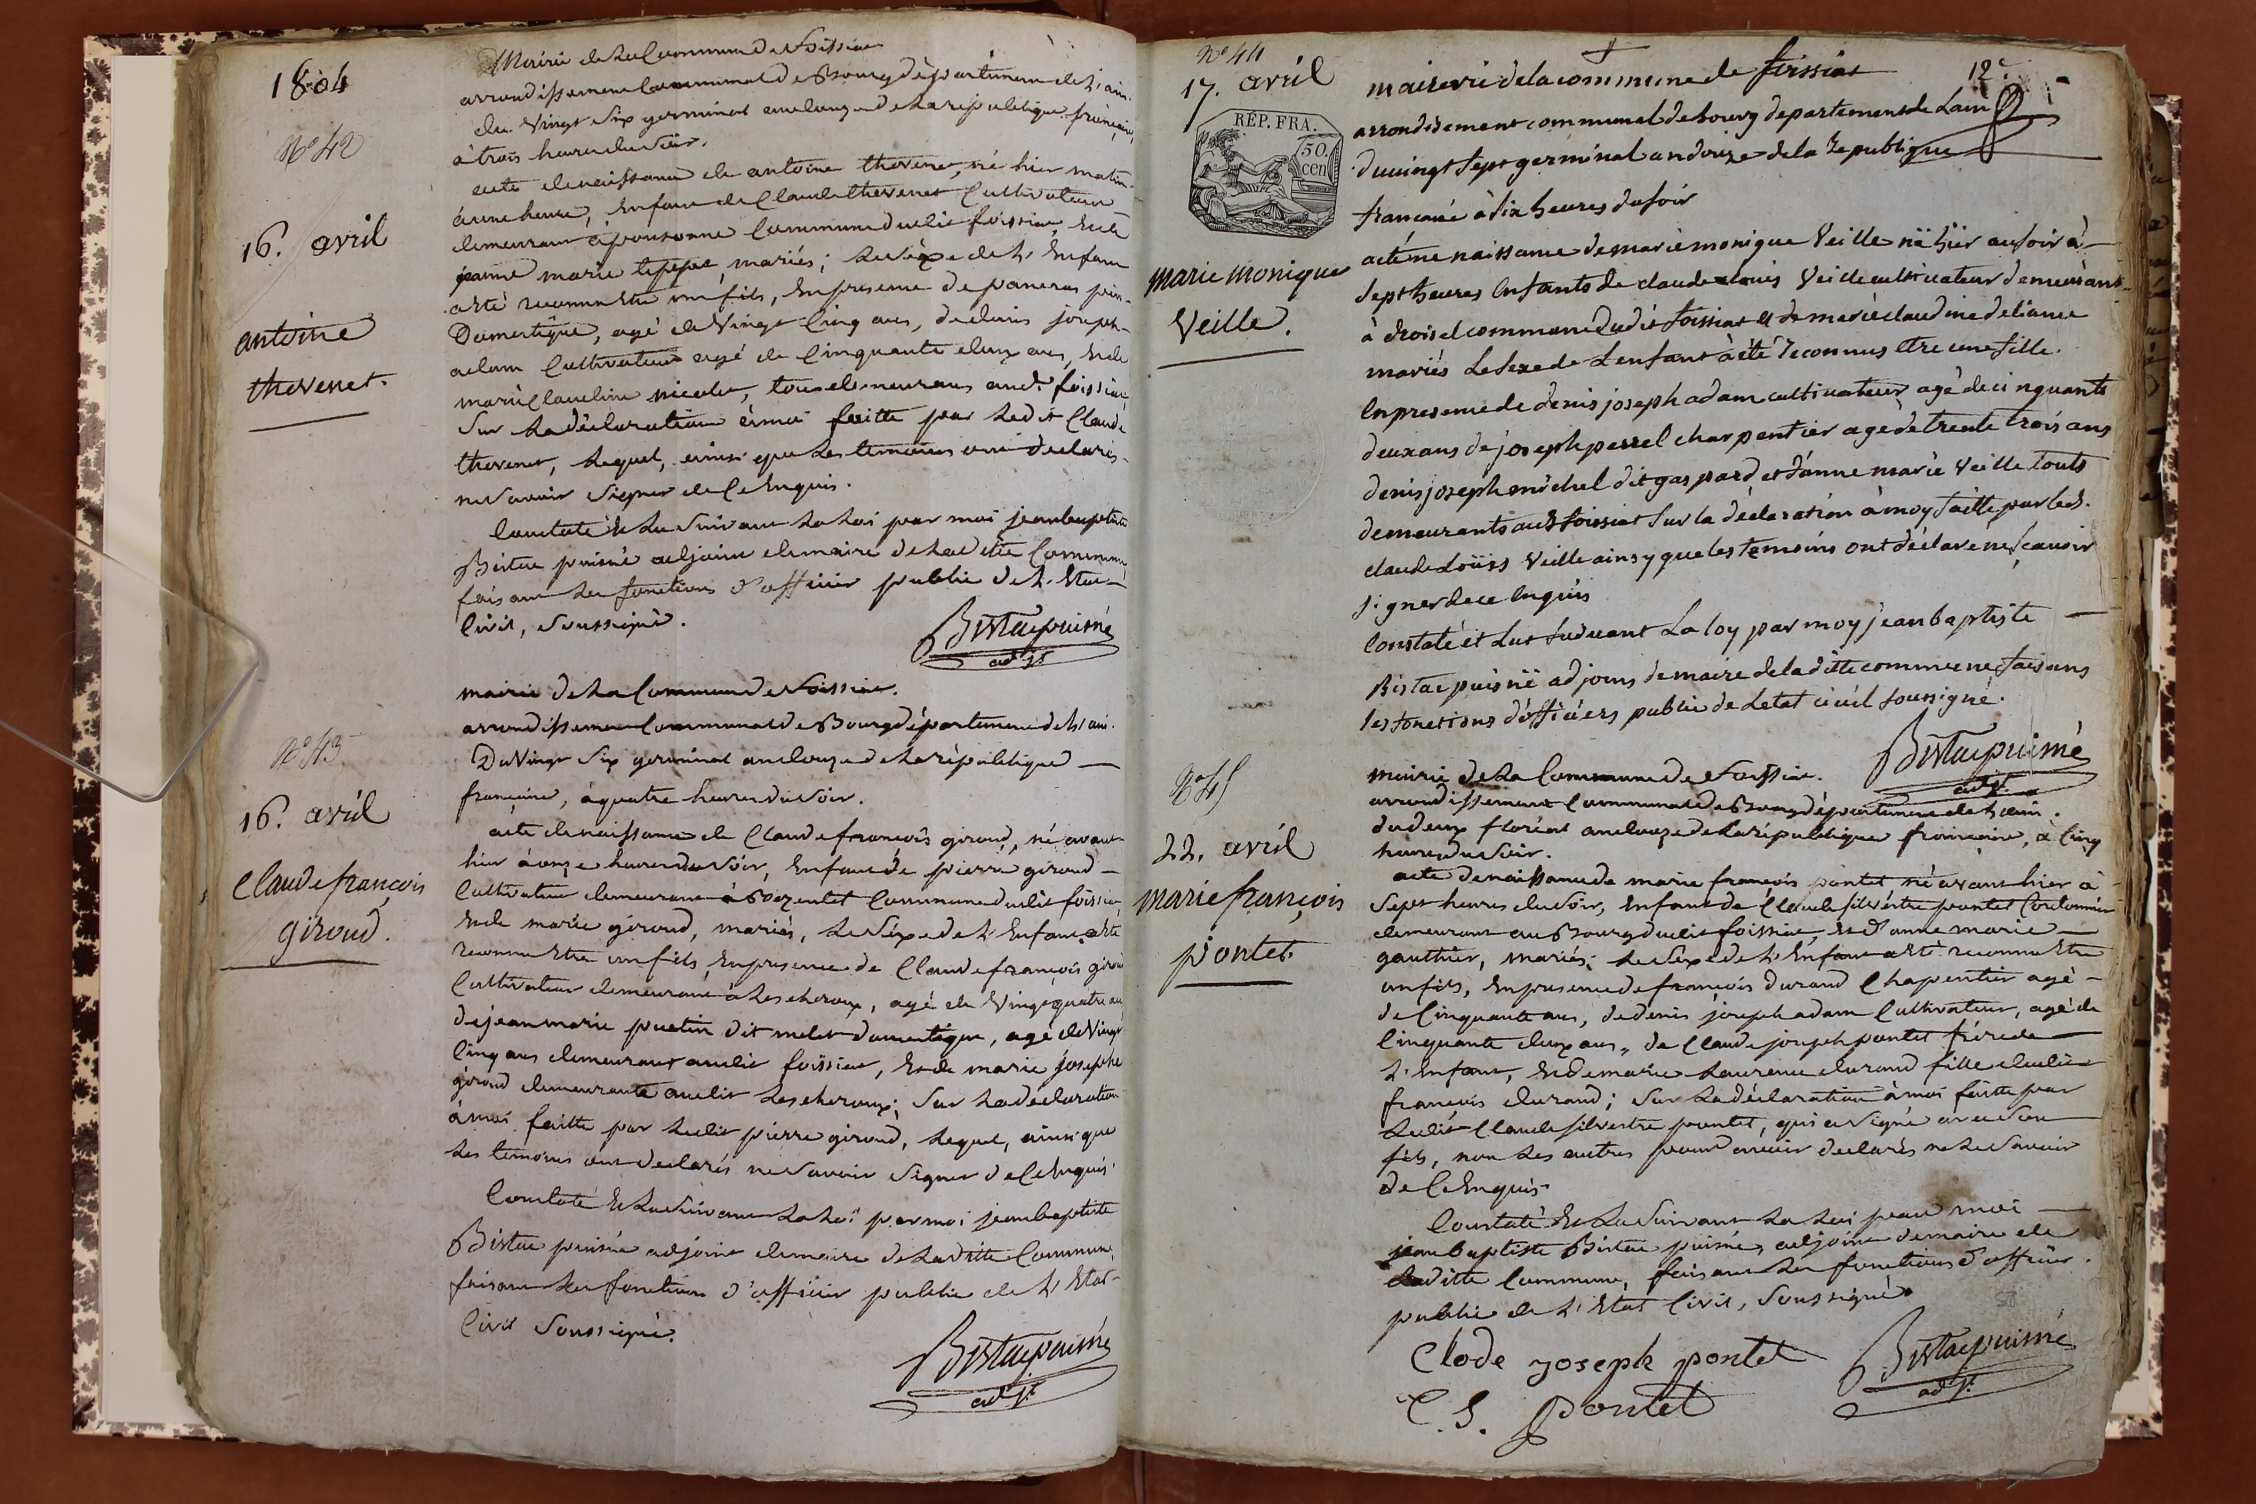 1804
Mairie de La Commune de Foissiat
arrondissement Communal de Bourg département de L'ain.
du vingt Six germinal an douze de La république française
à trois heures du Soir.
N° 42
16. avril
antoine
thevenet.
acte de naissance de antoine thevenet, né hier matin
à une heure, Enfant de Claude thevenet Cultivateur
demeurant à commune dudit foissiat, Et de
jeanne marie mariés; Le Séxe de L'Enfant
a Eté reconnu Etre un fils, En presence de
Domestique, agé de Vingt Cinq ans, de denis joseph
adam Cultivateur agé de Cinquante deux ans, Et de
marie Claudine nicolet, tous demeurans aud.t foissiat
Sur La déclaration à moi faitte par Ledit Claude
thevenet, Lequel, ainsi que Les temoins ont déclarés
ne Savoir Signer de Ce Enquis.
Constaté Et Lu Suivant La Loi par moi jean baptiste
Bistac puisné adjoint de maire de Ladite Commune
faisant Les fonctions d'officier public de L'Etat
Civil, Soussigné.
Bistac puisné
adjt
N° 43
16. avril
Claude françois
giroud.
mairie de La Commune de Foissiat.
arrondissement Communal de Bourg département de L'ain.
Du Vingt Six germinal an douze de La république
française, à quatre heures du Soir.
acte de naissance de Claude françois giroud, né avant
hier à onze heures du Soir, Enfant de pierre giroud
Cultivateur demeurant à Commune dudit foissiat
Et de marie giroud, mariés, Le Séxe de L'Enfant a Eté
reconnu Etre un fils, En presence de Claude françois giroud
Cultivateur demeurant à Lescheroux, agé de Vingt quatre ans
de jean marie dit domestique, agé de Vingt
Cinq ans demeurant audit foissiat, Et de marie josephe
giroud demeurante audit Lescheroux; Sur La déclaration
à moi faitte par Ledit pierre giroud, Lequel, ainsi que
Les temoins ont déclarés ne Savoir Signer de Ce Enquis.
Constaté Et Lu Suivant La Loi par moi jean baptiste
Bistac puisné adjoint de maire de Laditte Commune,
faisant Les fonctions d'officier public de L'Etat
Civil Soussigné.
Bistac puisné
adjt
N° 44
17. avril
RÉP. FRA.
50.
cen
marie monique
Veille.
12e
mairerie de la commune de foissiat
arrondisement communal de bourg departement de Lain
du vingt Sept germinal an douze de la Republique
francaise à Six heures du soir
acte me naissance de marie monique Veille né hïer au soir à
Sept heures Enfants de claude Louis Veille cultivateur demeurant
à drois el commune dudit foissiat et de marie claudine deliance
mariés Le Sexe de Lenfant à été Reconnus etre une fille
En presense de denis joseph adam cultivateur agé de cinquante
deux ans de joseph perrel charpentier agé de trente trois ans
denis joseph michel dit gaspard et d'anne marie Veille touts
demeurants aud foissiat Sur la déclaration à moy faitte par led.
claude Loüis Veille ainsy que les temoins ont déclare ne scavoir
signer de ce enquis
Constaté et Lut suduant La loy par moy jean baptiste
Bistac puisné adjoins de maire de la ditte commune faisans
les fonctions d'officiers public de Letat civil soussigné.
Bistac puisné
adjt
N° 45
22. avril
marie françois
pontet
mairie de La Commune de Foissiat.
arrondissement Communal de Bourg département de L'ain.
du deux floréal an douze de La république française, à Cinq
heures du Soir.
acte de naissance de marie françois pontet né avant hier à
Sept heures du Soir, Enfant de Claude Silvestre pontet Cordonnier
demeurant au Bourg dudit foissiat, Et d'anne marie
gauthier, mariés; Le Séxe de L'Enfant a Eté reconnu Etre
un fils, En presence de françois durand Chapentier agé
de Cinquante ans, de denis joseph adam Cultivateur, agé de
Cinquante deux ans, de Claude joseph pontet frére de
L'Enfant, Et de marie Laurence durand fille dudit
françois durand; Sur La déclaration à moi faitte par
Ledit Claude Silvestre pontet, qui a Signé avec Son
fils, non Les autres pour avoir déclarés ne Le Savoir
de Ce Enquis
Constaté Et Lu Suivant La Loi par moi
jean baptiste Bistac puisné, adjoint de maire de
Laditte Commune, faisant Les fonctions d'officier
public de L'Etat Civil, Soussigné
Clode joseph pontet
Bistac puisné
adjt
C. S. pontet